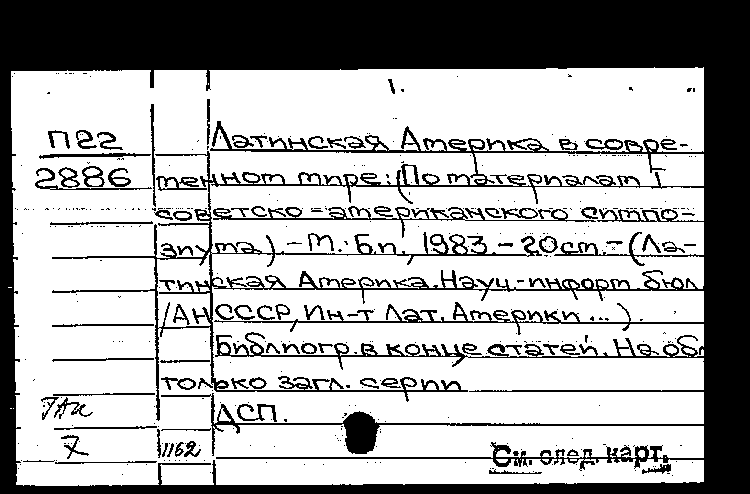 1.
П22 Латинская Америка в совре-
2886 менном мире: (По материалам I
советско-американского симпо-
зиума). - М.: Б.и., 1983. - 20 см. - (Ла-
тинская Америка. Науч.-информ. бюл.
/АН СССР, Ин-т Лат. Америки ...).
Библиогр. в конце статей. На обл.
только загл. серии
ДСП.
7 1162 См. след. карт.